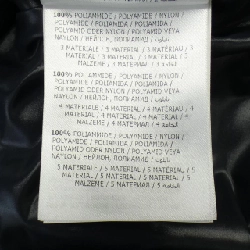 100% POLIAMMIDE / POLYAMIDE / NYLON /
POLYAMIDE / POLIAMIDA / POLIAMIDA /
POLYAMID ODER NYLON / POLYAMID VEYA
NAYLON / НЕЙЛОН, ПОЛИАМИД /
3 MATERIALE / 3 MATERIAL / 3 MATERIAU / 3
MATERIAL / 3 MATERIAL / 3 MATERIAL / 3
MALZEME / 3 МАТЕРИАЛ / 3
100% POLIAMMIDE / POLYAMIDE / NYLON /
POLYAMIDE / POLIAMIDA / POLIAMIDA /
POLYAMID ODER NYLON / POLYAMID VEYA
NAYLON / НЕЙЛОН, ПОЛИАМИД /
4 MATERIALE / 4 MATERIAL / 4 MATERIAU / 4
MATERIAL / 4 MATERIAL / 4 MATERIAL / 4
MALZEME / 4 МАТЕРИАЛ / 4
100% POLIAMMIDE / POLYAMIDE / NYLON /
POLYAMIDE / POLIAMIDA / POLIAMIDA /
POLYAMID ODER NYLON / POLYAMID VEYA
NAYLON / НЕЙЛОН, ПОЛИАМИД /
5 MATERIALE / 5 MATERIAL / 5 MATERIAU / 5
MATERIAL / 5 MATERIAL / 5 MATERIAL / 5
MALZEME / 5 МАТЕРИАЛ / 5